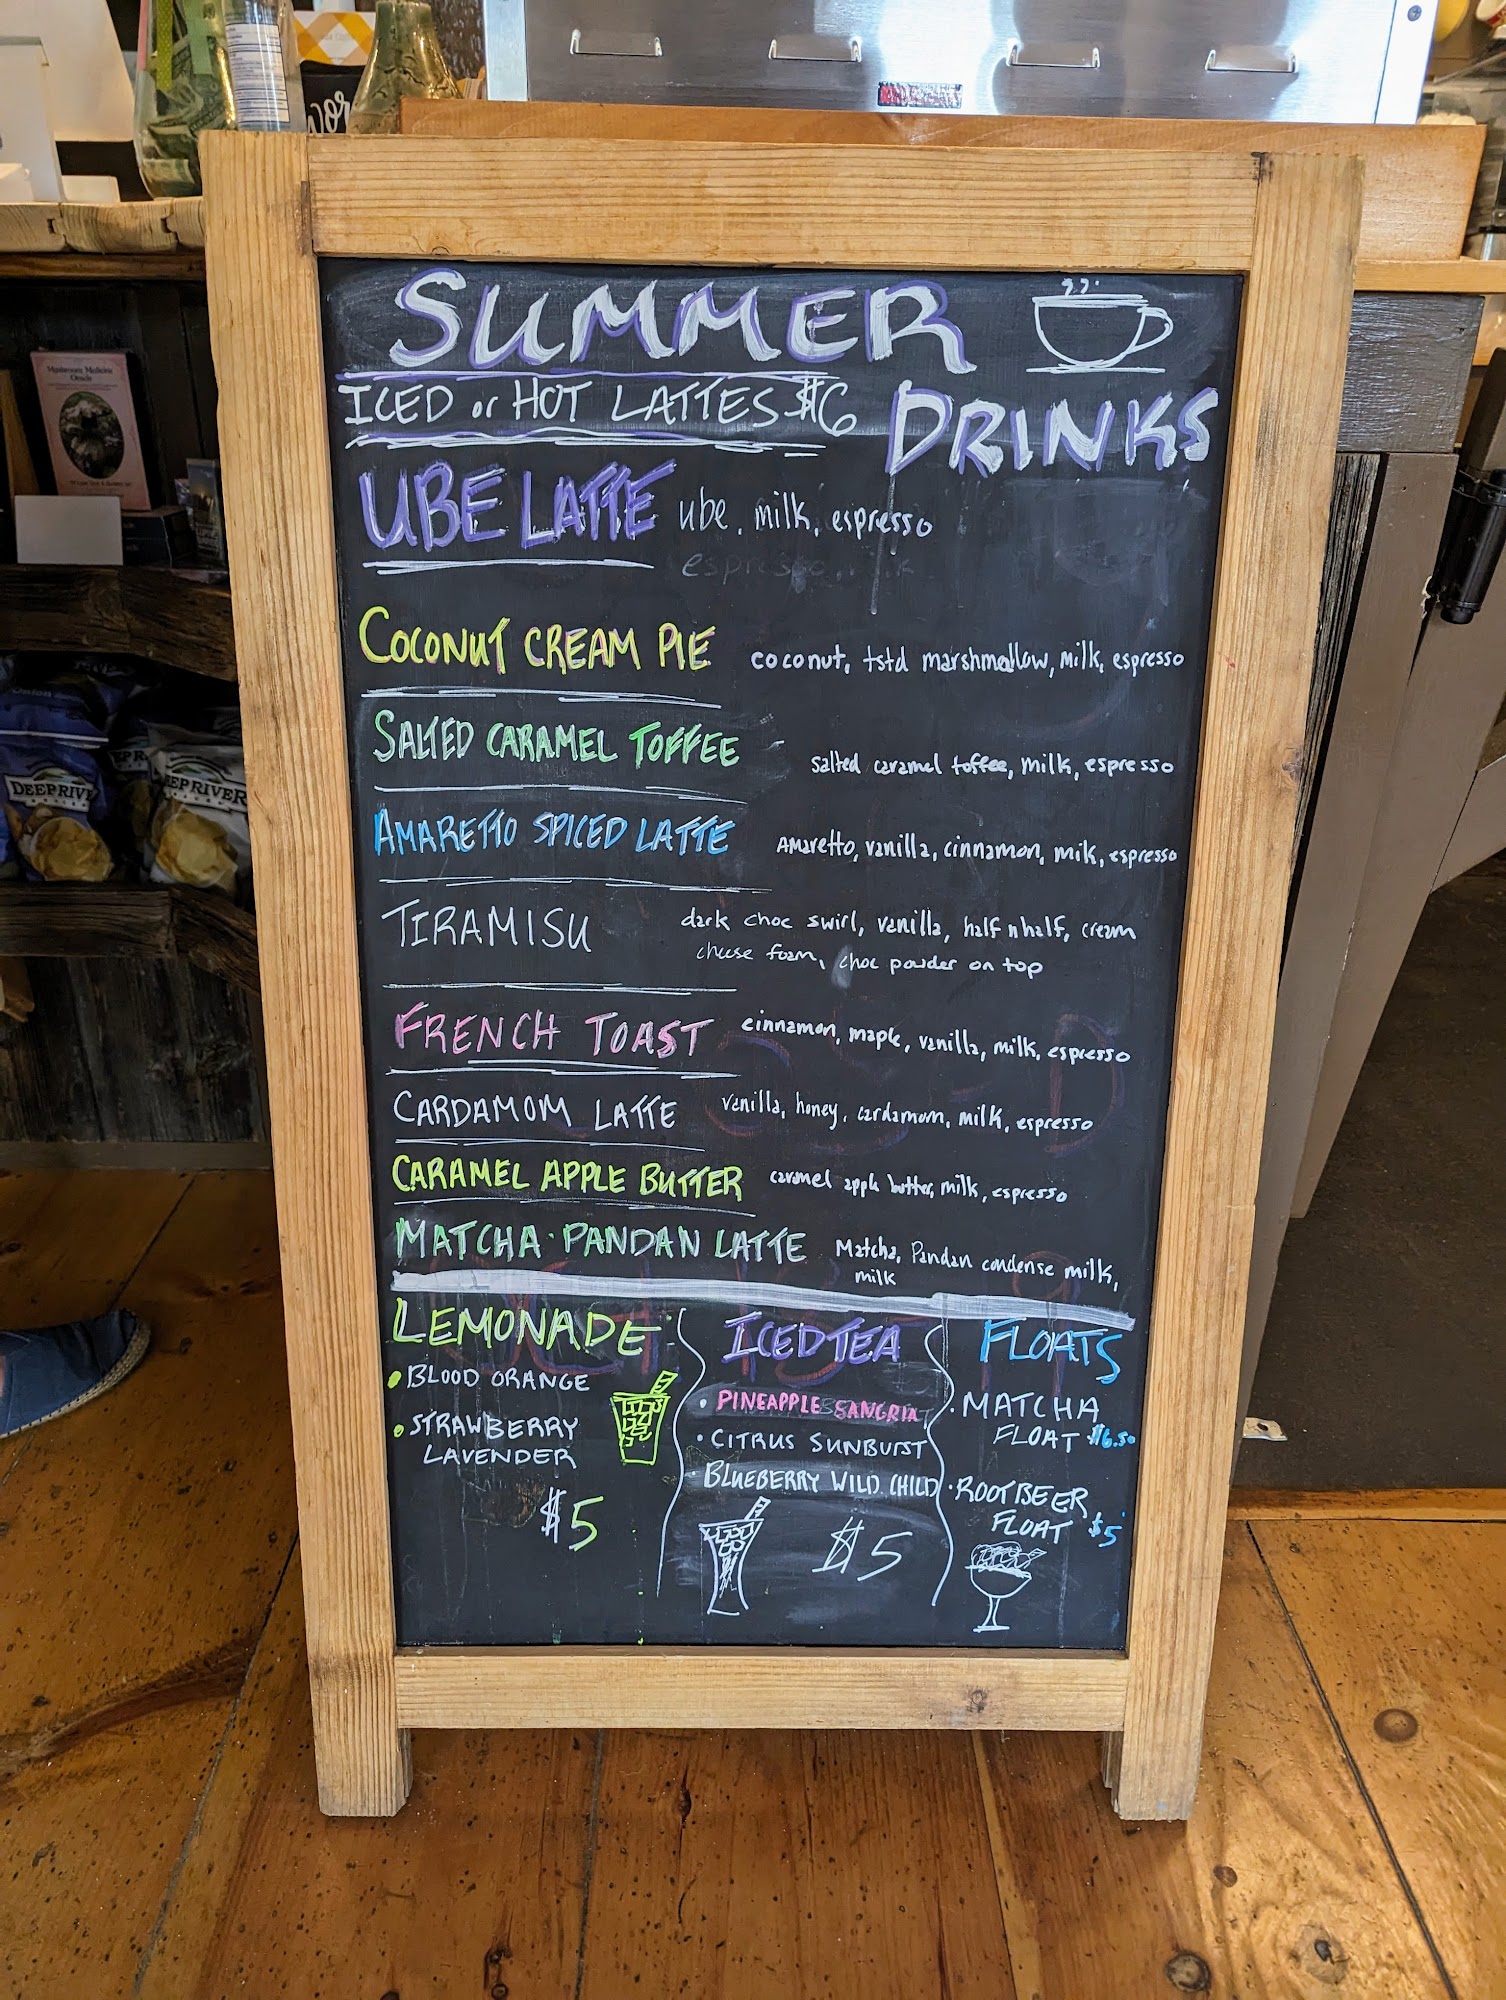 SUMMER
DRINKS
ICED or HOT LATTES $6
UBE LATTE ube, milk, espresso
COCONUT CREAM PIE coconut, tstd marshmallow, milk, espresso
SALTED CARAMEL TOFFEE salted caramel toffee, milk, espresso
AMARETTO SPICED LATTE Amaretto, vanilla, cinnamon, milk, espresso
TIRAMISU dark choc swirl, vanilla, half n half, cream
cheese foam, choc powder on top
FRENCH TOAST cinnamon, maple, vanilla, milk, espresso
CARDAMOM LATTE vanilla, honey, cardamom, milk, espresso
CARAMEL APPLE BUTTER caramel apple butter, milk, espresso
MATCHA · PANDAN LATTE Matcha, Pandan condense milk,
milk
LEMONADE
• BLOOD ORANGE
• STRAWBERRY
LAVENDER
$5
ICED TEA
• PINEAPPLE SANGRIA
• CITRUS SUNBURST
• BLUEBERRY WILD CHILD
$5
FLOATS
• MATCHA
FLOAT $6.50
• ROOTBEER
FLOAT $5
Mushroom Medicine
Oracle
DEEP RIVER
DEEP RIVER